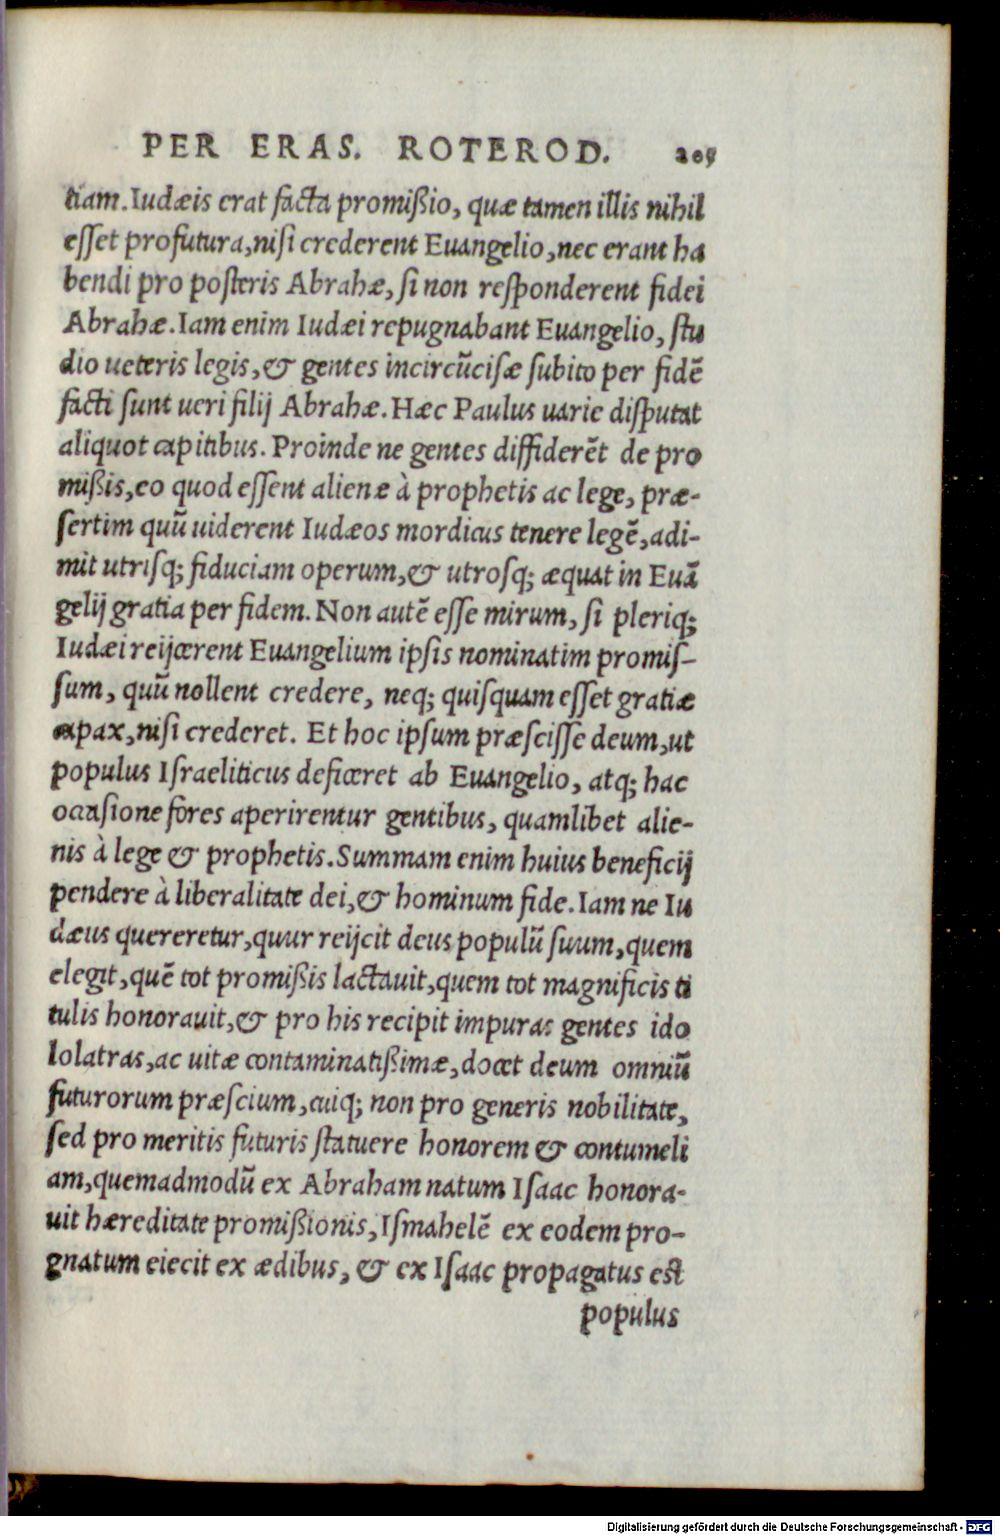 PER ERAS. ROTEROD. 205
tiam. Iudæis erat facta promißio, quæ tamen illis nihil
esset profutura, nisi crederent Euangelio, nec erant ha
bendi pro posteris Abrahæ, si non responderent fidei
Abrahæ. Iam enim Iudæi repugnabant Euangelio, stu
dio ueteris legis, & gentes incircũcisæ subito per fidẽ
facti sunt ueri filij Abrahæ. Hæc Paulus uarie disputat
aliquot capitibus. Proinde ne gentes diffiderẽt de pro
mißis, eo quod essent alienæ à prophetis ac lege, præ-
sertim quũ uiderent Iudæos mordicus tenere legẽ, adi-
mit utrisq; fiduciam operum, & utrosq; æquat in Euã
gelij gratia per fidem. Non autẽ esse mirum, si pleriq;
Iudæi reijcerent Euangelium ipsis nominatim promis-
sum, quũ nollent credere, neq; quisquam esset gratiæ
capax, nisi crederet. Et hoc ipsum præscisse deum, ut
populus Israeliticus deficeret ab Euangelio, atq; hac
occasione fores aperirentur gentibus, quamlibet alie-
nis à lege & prophetis. Summam enim huius beneficij
pendere à liberalitate dei, & hominum fide. Iam ne Iu
dæus quereretur, quur reijcit deus populũ suum, quem
elegit, quẽ tot promißis lactauit, quem tot magnificis ti
tulis honorauit, & pro his recipit impuras gentes ido
lolatras, ac uitæ contaminatißimæ, docet deum omniũ
futurorum præscium, cuiq; non pro generis nobilitate,
sed pro meritis futuris statuere honorem & contumeli
am, quemadmodũ ex Abraham natum Isaac honora-
uit hæreditate promißionis, Ismahelẽ ex eodem pro-
gnatum eiecit ex ædibus, & ex Isaac propagatus est
populus
Digitalisierung gefördert durch die Deutsche Forschungsgemeinschaft - DFG